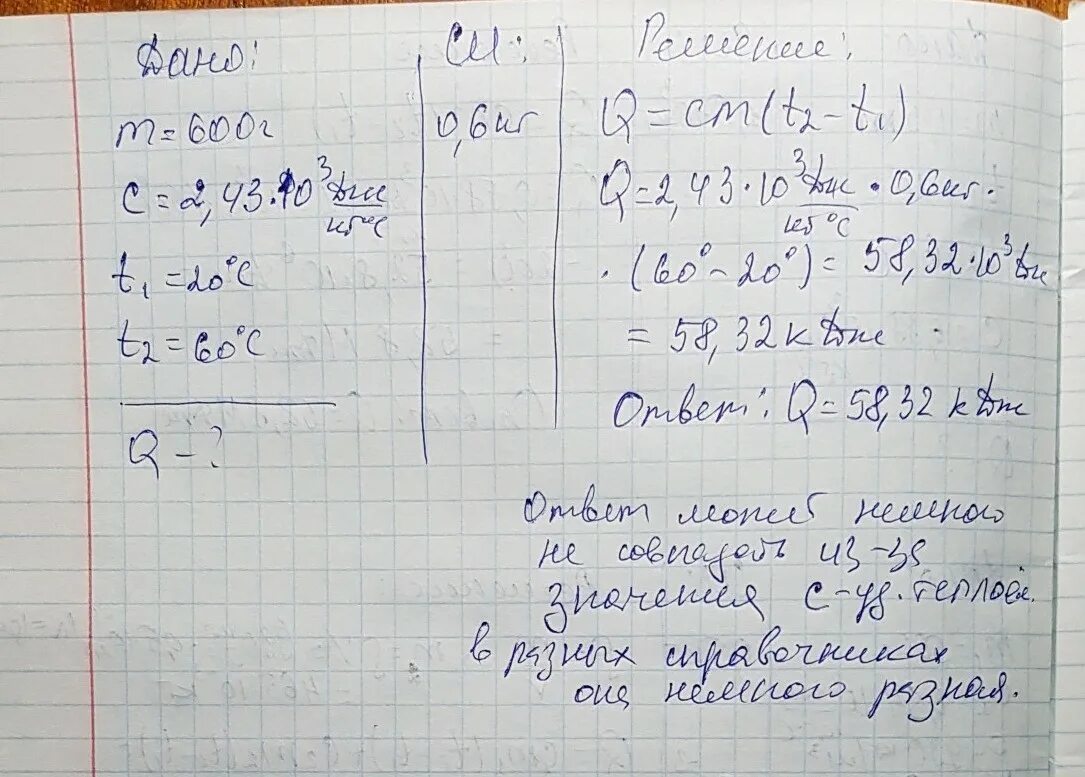 Дано:
m = 600г
c = 2,43·10³ Дж/кг°С
t₁ = 20°С
t₂ = 60°С
Q - ?
СИ:
0,6кг
Решение:
Q = cm(t₂ - t₁)
Q = 2,43·10³ Дж/кг°С · 0,6кг ·
· (60° - 20°) = 58,32·10³ Дж
= 58,32 кДж
Ответ: Q = 58,32 кДж
Ответ может немного
не совпадать из-за
значения с - уд. теплоём.
в разных справочниках
она немного разная.